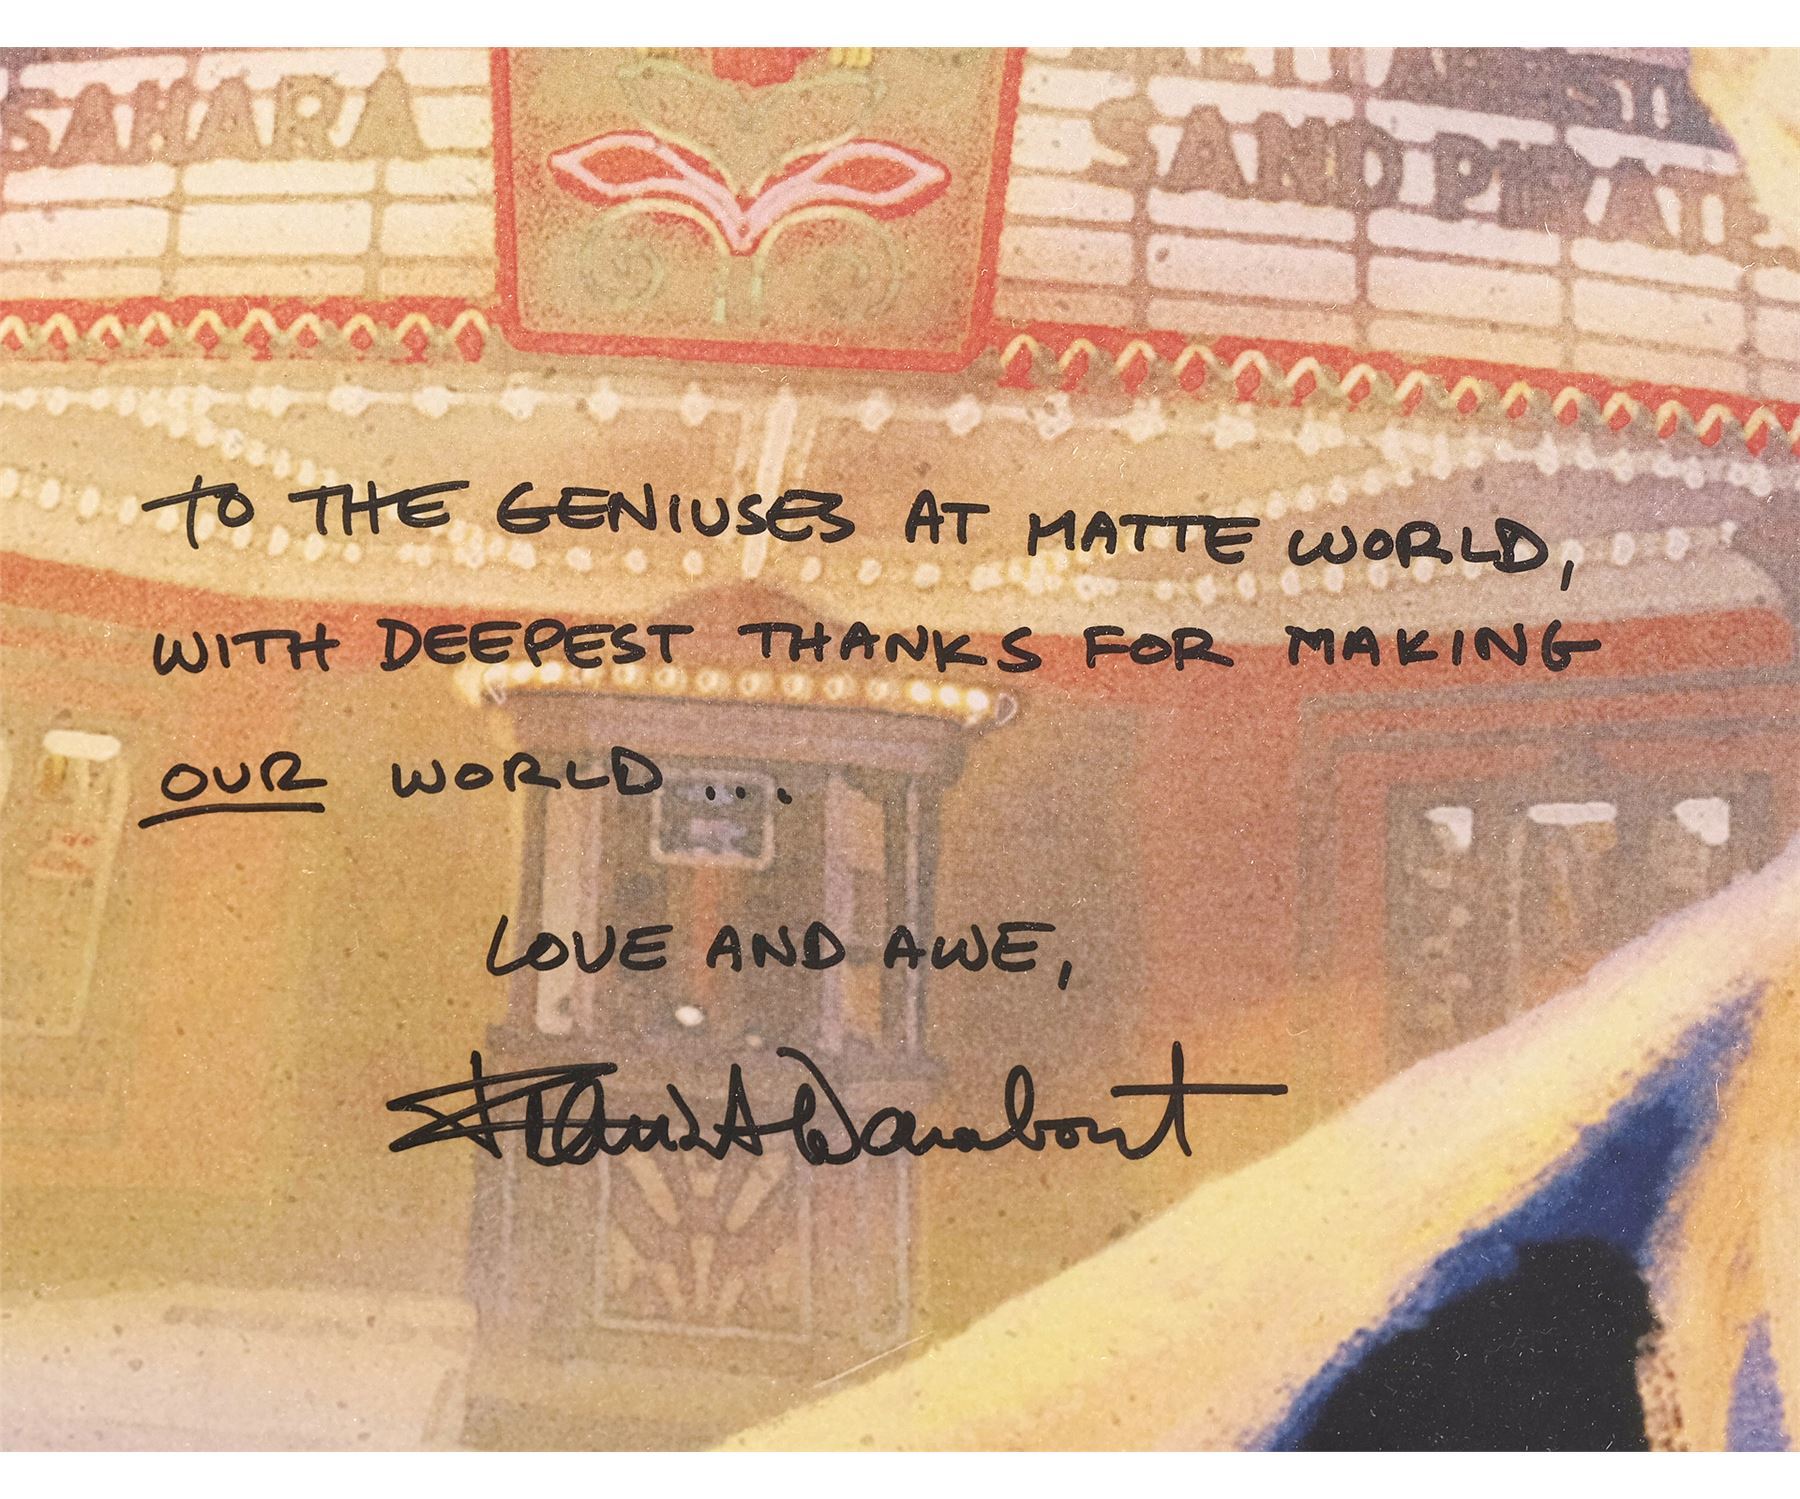 SAHARA
SAND PIRATE
TO THE GENIUSES AT MATTE WORLD,
WITH DEEPEST THANKS FOR MAKING
OUR WORLD...
LOVE AND AWE,
Frank A Darabont